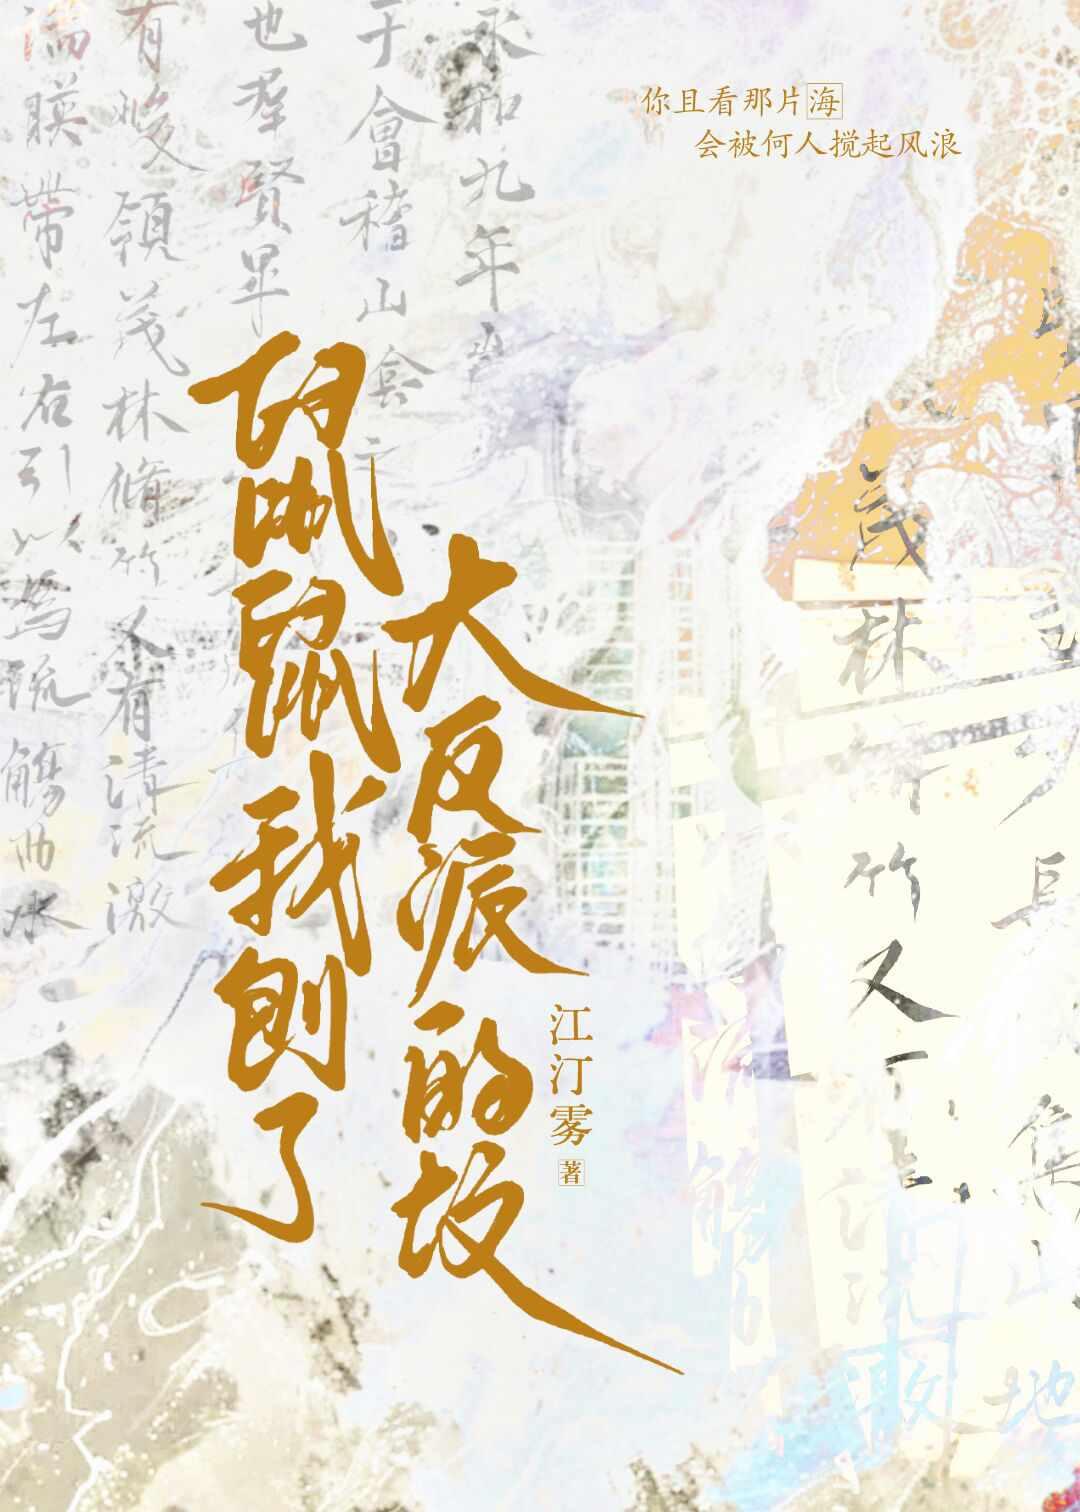 你且看那片海
会被何人搅起风浪
大反派的坟
鼠鼠我刨了
江汀雾 著
永和九年
于會稽山陰之
也羣賢畢
有峻領茂林脩竹又有清流激
湍暎帶左右引以為流觴曲水
茂林脩竹又有清流激